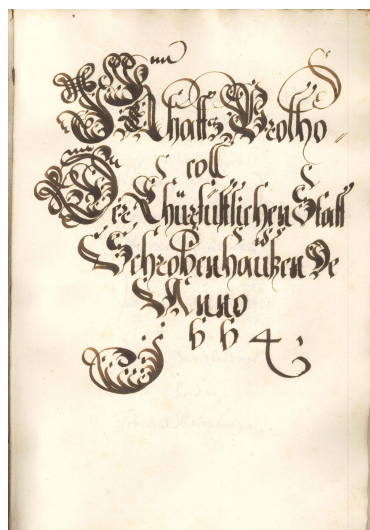 Rhatts Protho=
coll
Der Churfürstlichen Statt
Schrobenhaußen De
Anno
1664.